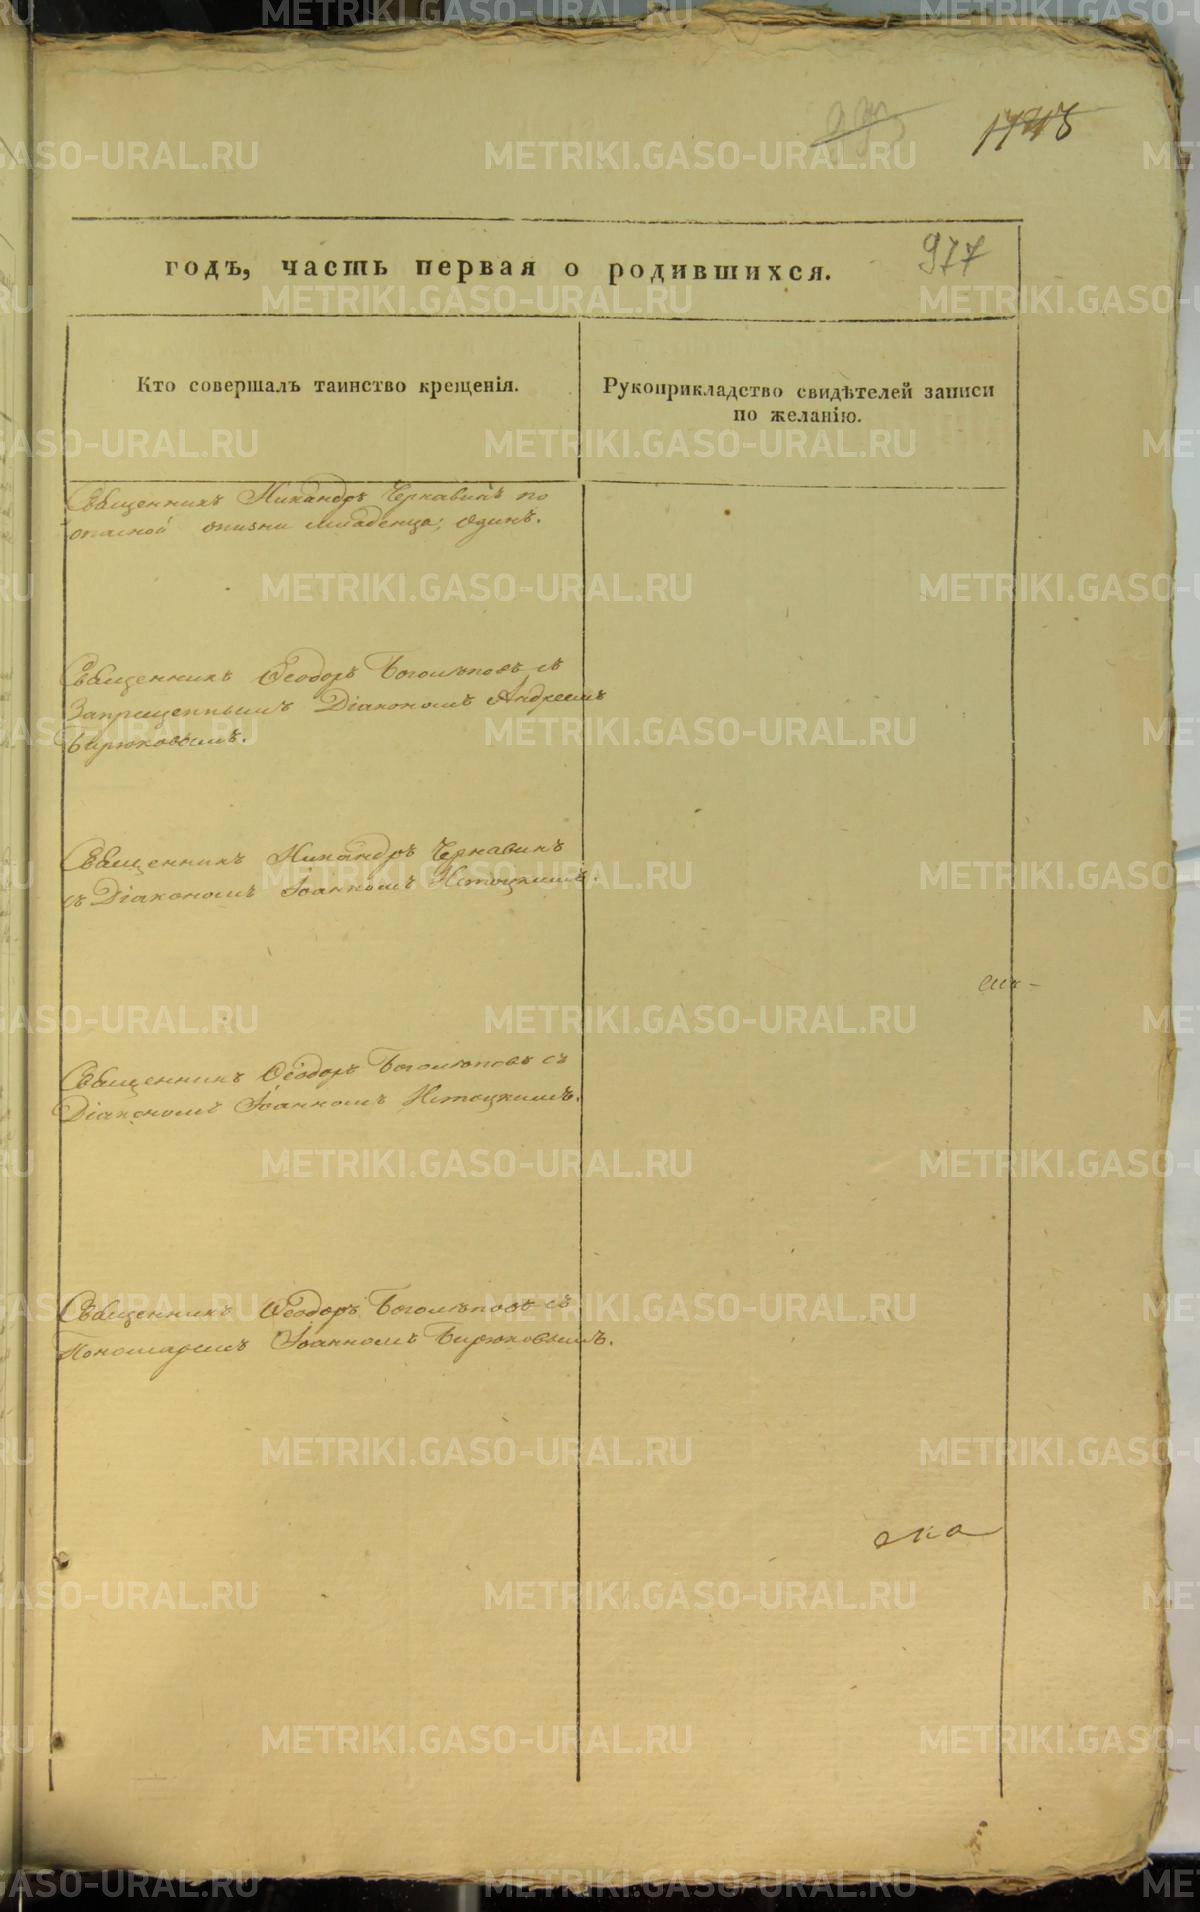 1743
977
годъ, часть первая о родившихся.
Кто совершалъ таинство крещенія.
Рукоприкладство свидѣтелей записи
по желанію.
Священникъ Никандръ Чернавинъ по
опасной жизни младенца, одинъ.
Священникъ Ѳеодоръ Боголѣповъ съ
Запрещеннымъ Діакономъ Андреемъ
Бирюковымъ.
Священникъ Никандръ Чернавинъ
съ Діакономъ Іоанномъ Истоцкимъ.
Священникъ Ѳеодоръ Боголѣповъ съ
Діакономъ Іоанномъ Истоцкимъ.
Священникъ Ѳеодоръ Боголѣповъ съ
Пономаремъ Іоанномъ Бирюковымъ.
METRIKI.GASO-URAL.RU